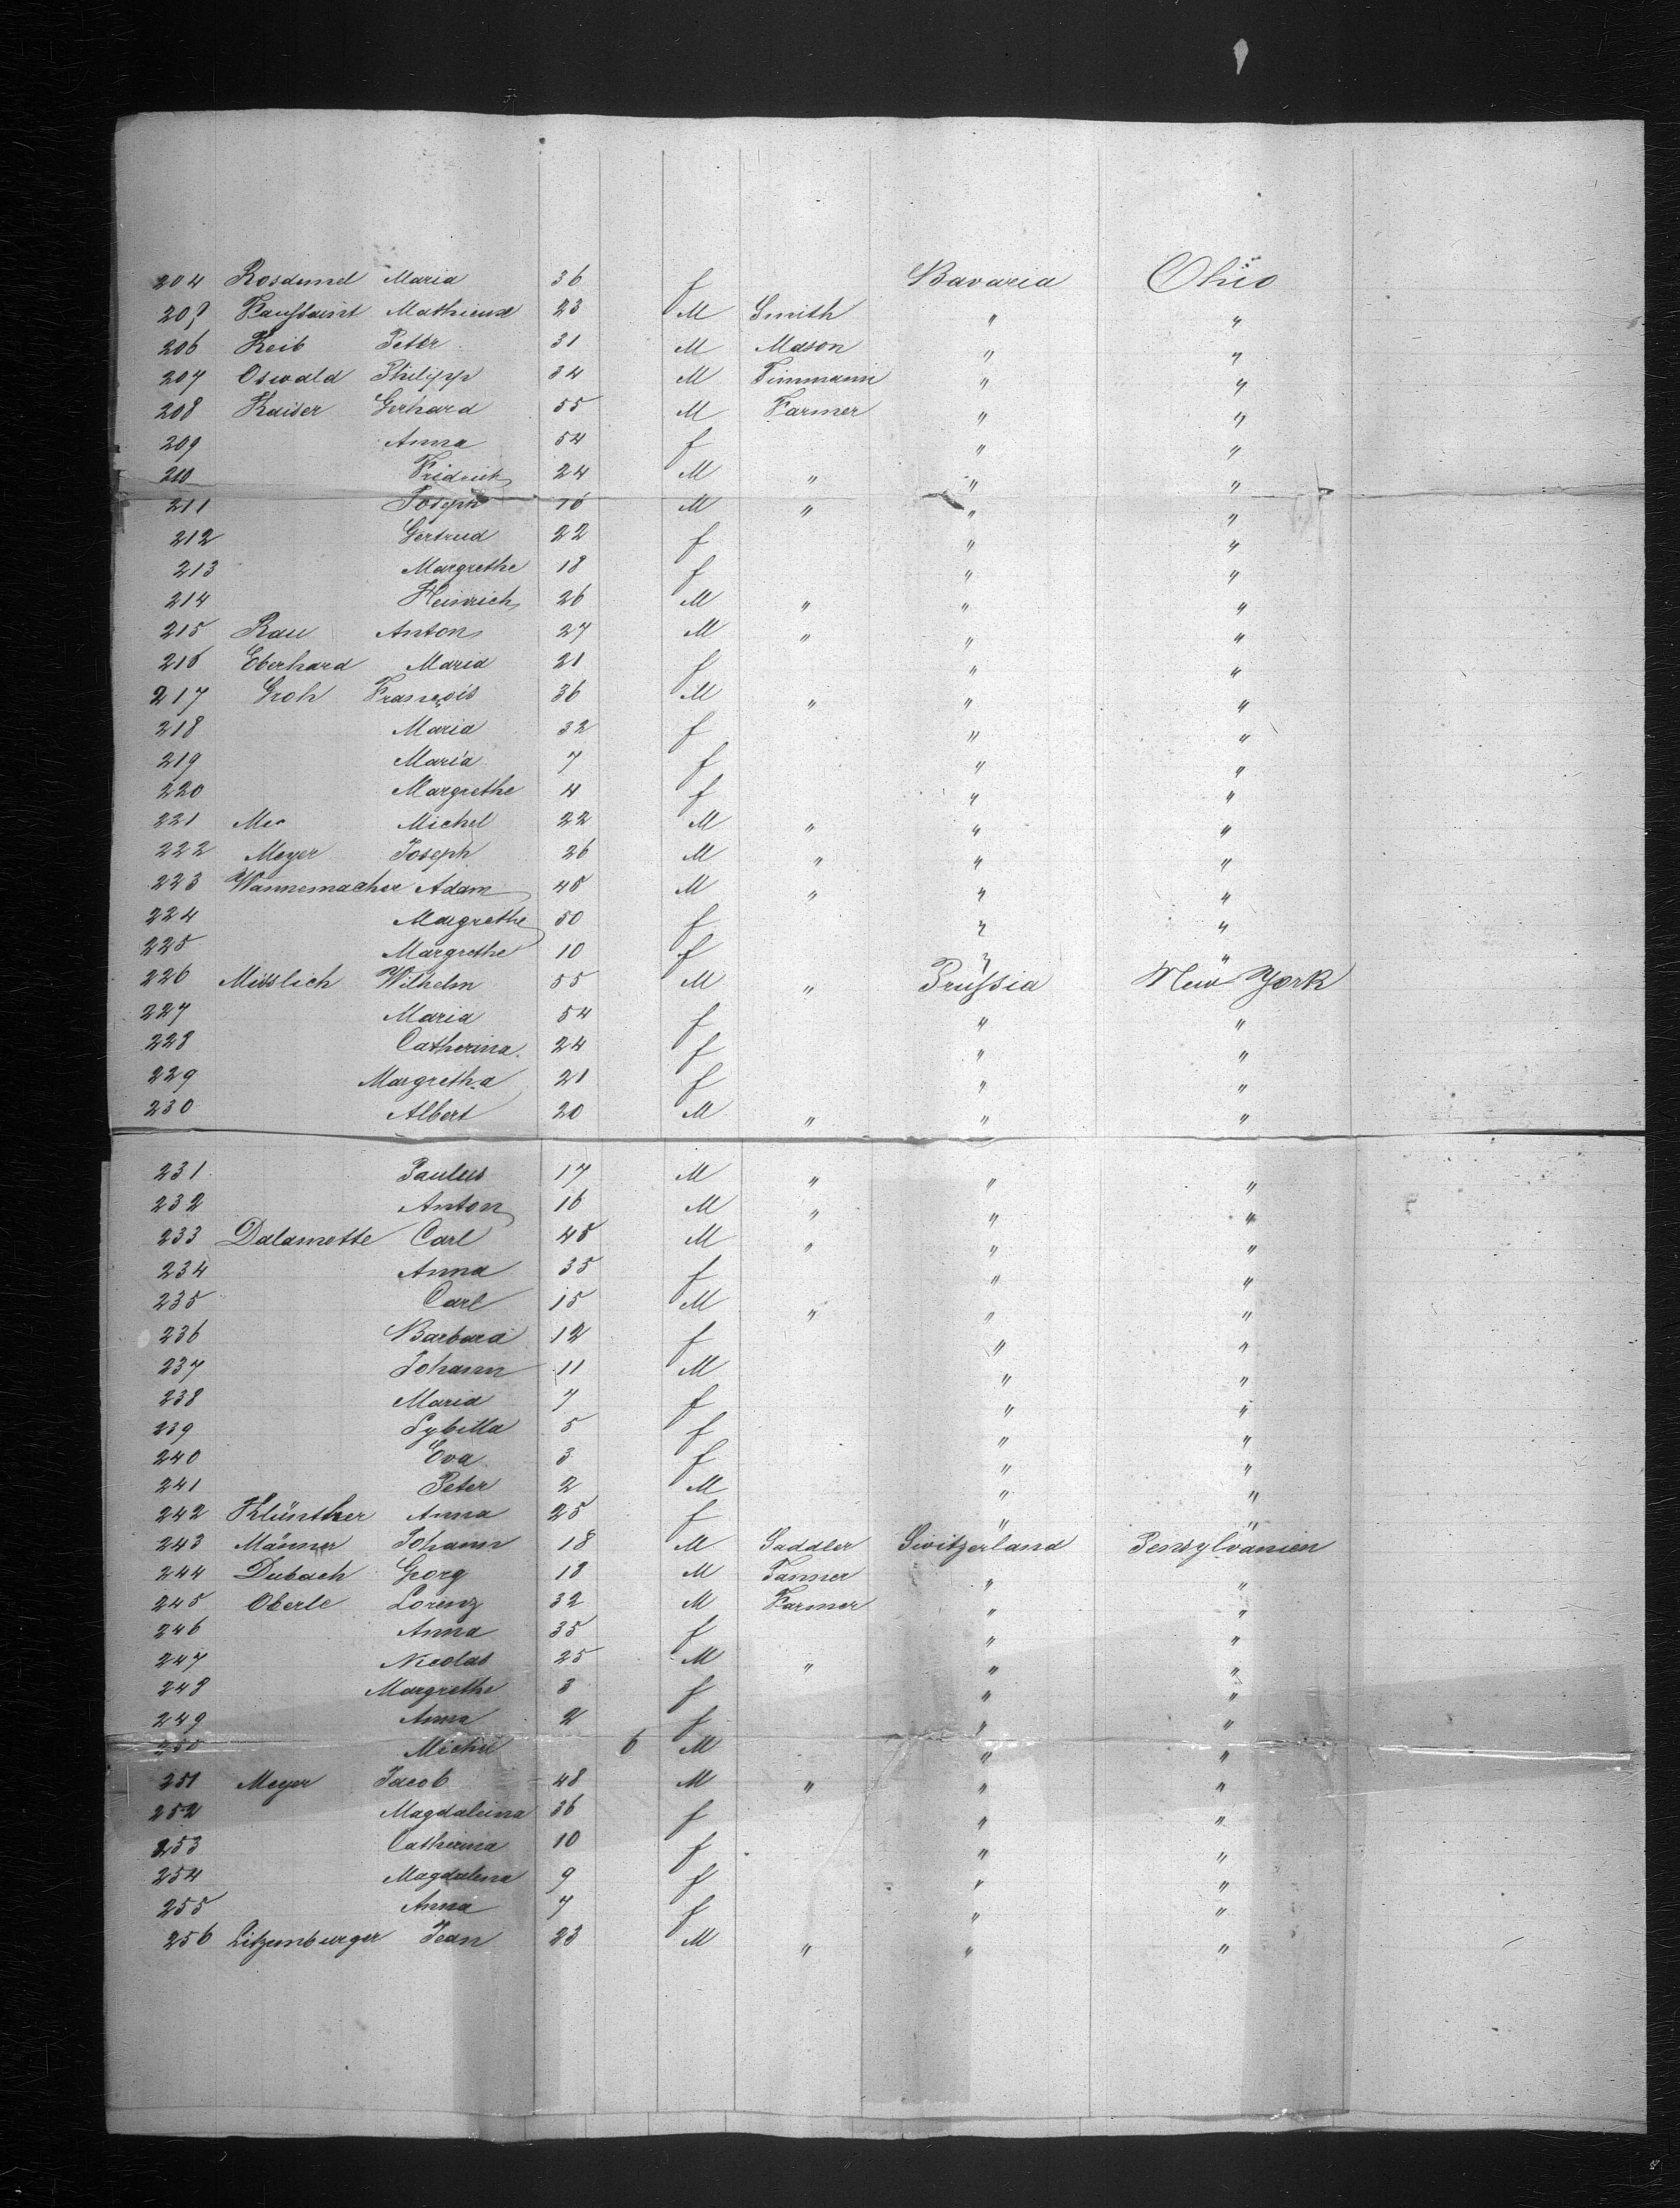 204 Rosdemel Maria 36 f Bavaria Ohio
205 Maria Mathieux 23 M Smith " "
206 Keib Peter 31 M Mason " "
207 Oswald Philipp 34 M Timmann " "
208 Kaiser Gerhard 55 M Farmer " "
209 Anna 54 f " "
210 Fridrich 24 M " " "
211 Joseph 16 M " " "
212 Gertrud 22 f " "
213 Margrethe 18 f " "
214 Heinrich 26 M " " "
215 Rau Anton 27 M " " "
216 Eberhard Maria 21 f " "
217 Groh François 36 M " " "
218 Maria 32 f " "
219 Maria 7 f " "
220 Margrethe 4 f " "
221 Michel 22 M " " "
222 Meyer Joseph 26 M " " "
223 Wannemacher Adam 45 M " " "
224 Margrethe 50 f " "
225 Margrethe 10 f " "
226 Misslich Wilhelm 55 M " Prussia New York
227 Maria 54 f " "
228 Catherina 24 f " "
229 Margretha 21 f " "
230 Albert 20 M " " "
231 Paulus 17 M " " "
232 Anton 16 M " " "
233 Dalamotte Carl 45 M " " "
234 Anna 35 f " "
235 Carl 15 M " " "
236 Barbara 12 f " "
237 Johann 11 M " "
238 Maria 7 f " "
239 Sybilla 5 f " "
240 Eva 3 f " "
241 Peter 2 M " "
242 Klünther Anna 25 f " "
243 Männer Johann 18 M Saddler Switzerland Pensylvanien
244 Dubach Georg 18 M Tanner " "
245 Oberle Lorenz 32 M Farmer " "
246 Anna 35 f " "
247 Nicolas 25 M " " "
248 Margrethe 3 f " "
249 Anna 2 f " "
250 Michel 6 M " "
251 Meyer Jacob 48 M " " "
252 Magdaleina 36 f " "
253 Catherina 10 f " "
254 Magdalena 9 f " "
255 Anna 7 f " "
256 Litzenburger Jean 23 M " " "